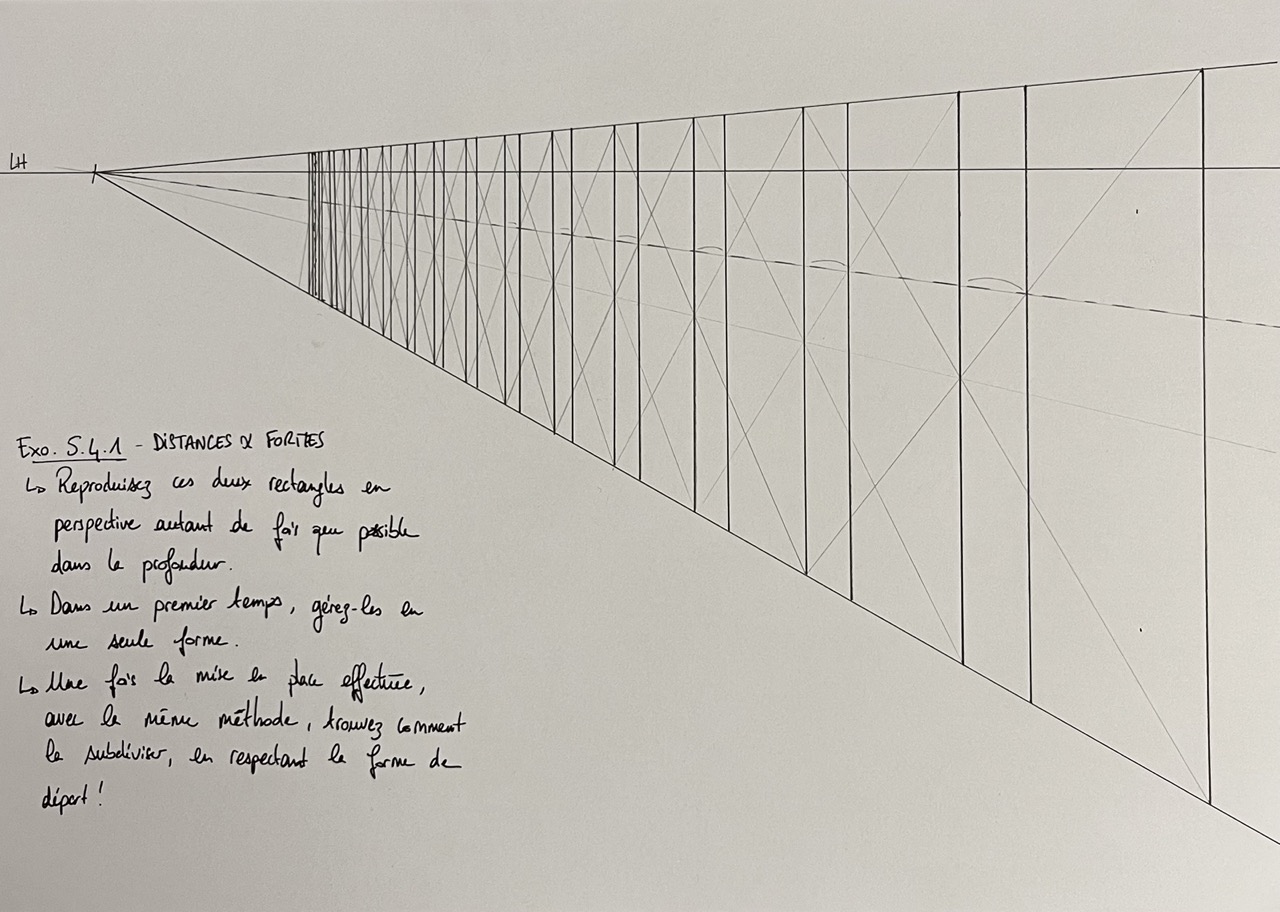 LH
Exo. S.4.1 - DISTANCES & FORMES
↳ Reproduisez ces deux rectangles en
perspective autant de fois que possible
dans la profondeur.
↳ Dans un premier temps, gérez-les en
une seule forme.
↳ Une fois la mise en place effectuée,
avec la même méthode, trouvez comment
la subdiviser, en respectant la forme de
départ !